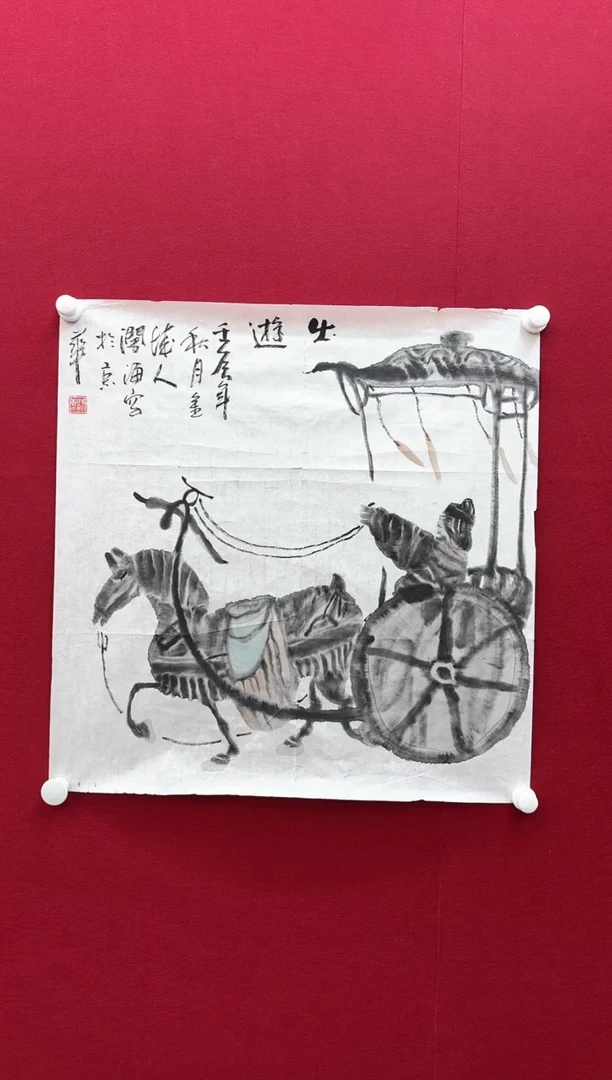 出遊
壬辰年
秋月金
陵人
海写
於京
華